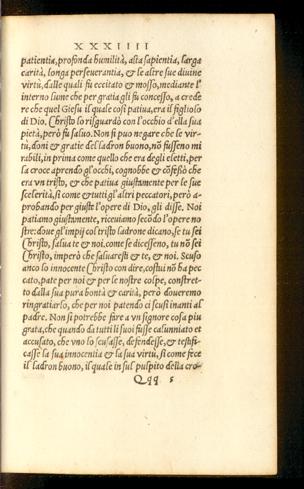 XXXIIII
patientia, profonda humilità, alta sapientia, larga
carità, longa perseverantia, & le altre sue divine
virtù, dalle quali fu eccitato & mosso, mediante l'
interno lume che per gratia gli fu concesso, a crede
re che quel Giesu il quale così pativa, era il figliolo
di Dio. Christo lo risguardò con l'occhio d'ella sua
pietà, però fu salvo. Non si puo negare che le vir-
tù, doni & gratie del ladron buono, nō fusseno mi
rabili, in prima come quello che era degli eletti, per
la croce aprendo gl'occhi, cognobbe & cōfessò che
era vn tristo, & che pativa giustamente per le sue
scelerità, si come & tutti gl'altri peccatori, però a-
probando per giuste l'opere di Dio, gli disse. Noi
patiamo giustamente, riceviamo secōdo l'opere no
stre: dove gl'impij col tristo ladrone dicano, se tu sei
Christo, salva te & noi. come se dicesseno, tu nō sei
Christo, imperò che salvaresti & te, & noi. Scuso
anco lo innocente Christo con dire, costui nō ha pec
cato, pate per noi & per le nostre colpe, constret-
to dalla sua pura bontà & carità, però doveremo
ringratiarlo, che per noi patendo ci scusi inanti al
padre. Non si potrebbe fare a vn signore cosa piu
grata, che quando da tutti li suoi fusse calunniato et
accusato, che vno lo scusasse, defendesse, & testifi-
casse la sua innocentia & la sua virtù, si come fece
il ladron buono, il quale in sul pulpito della cro-
Qqq 5